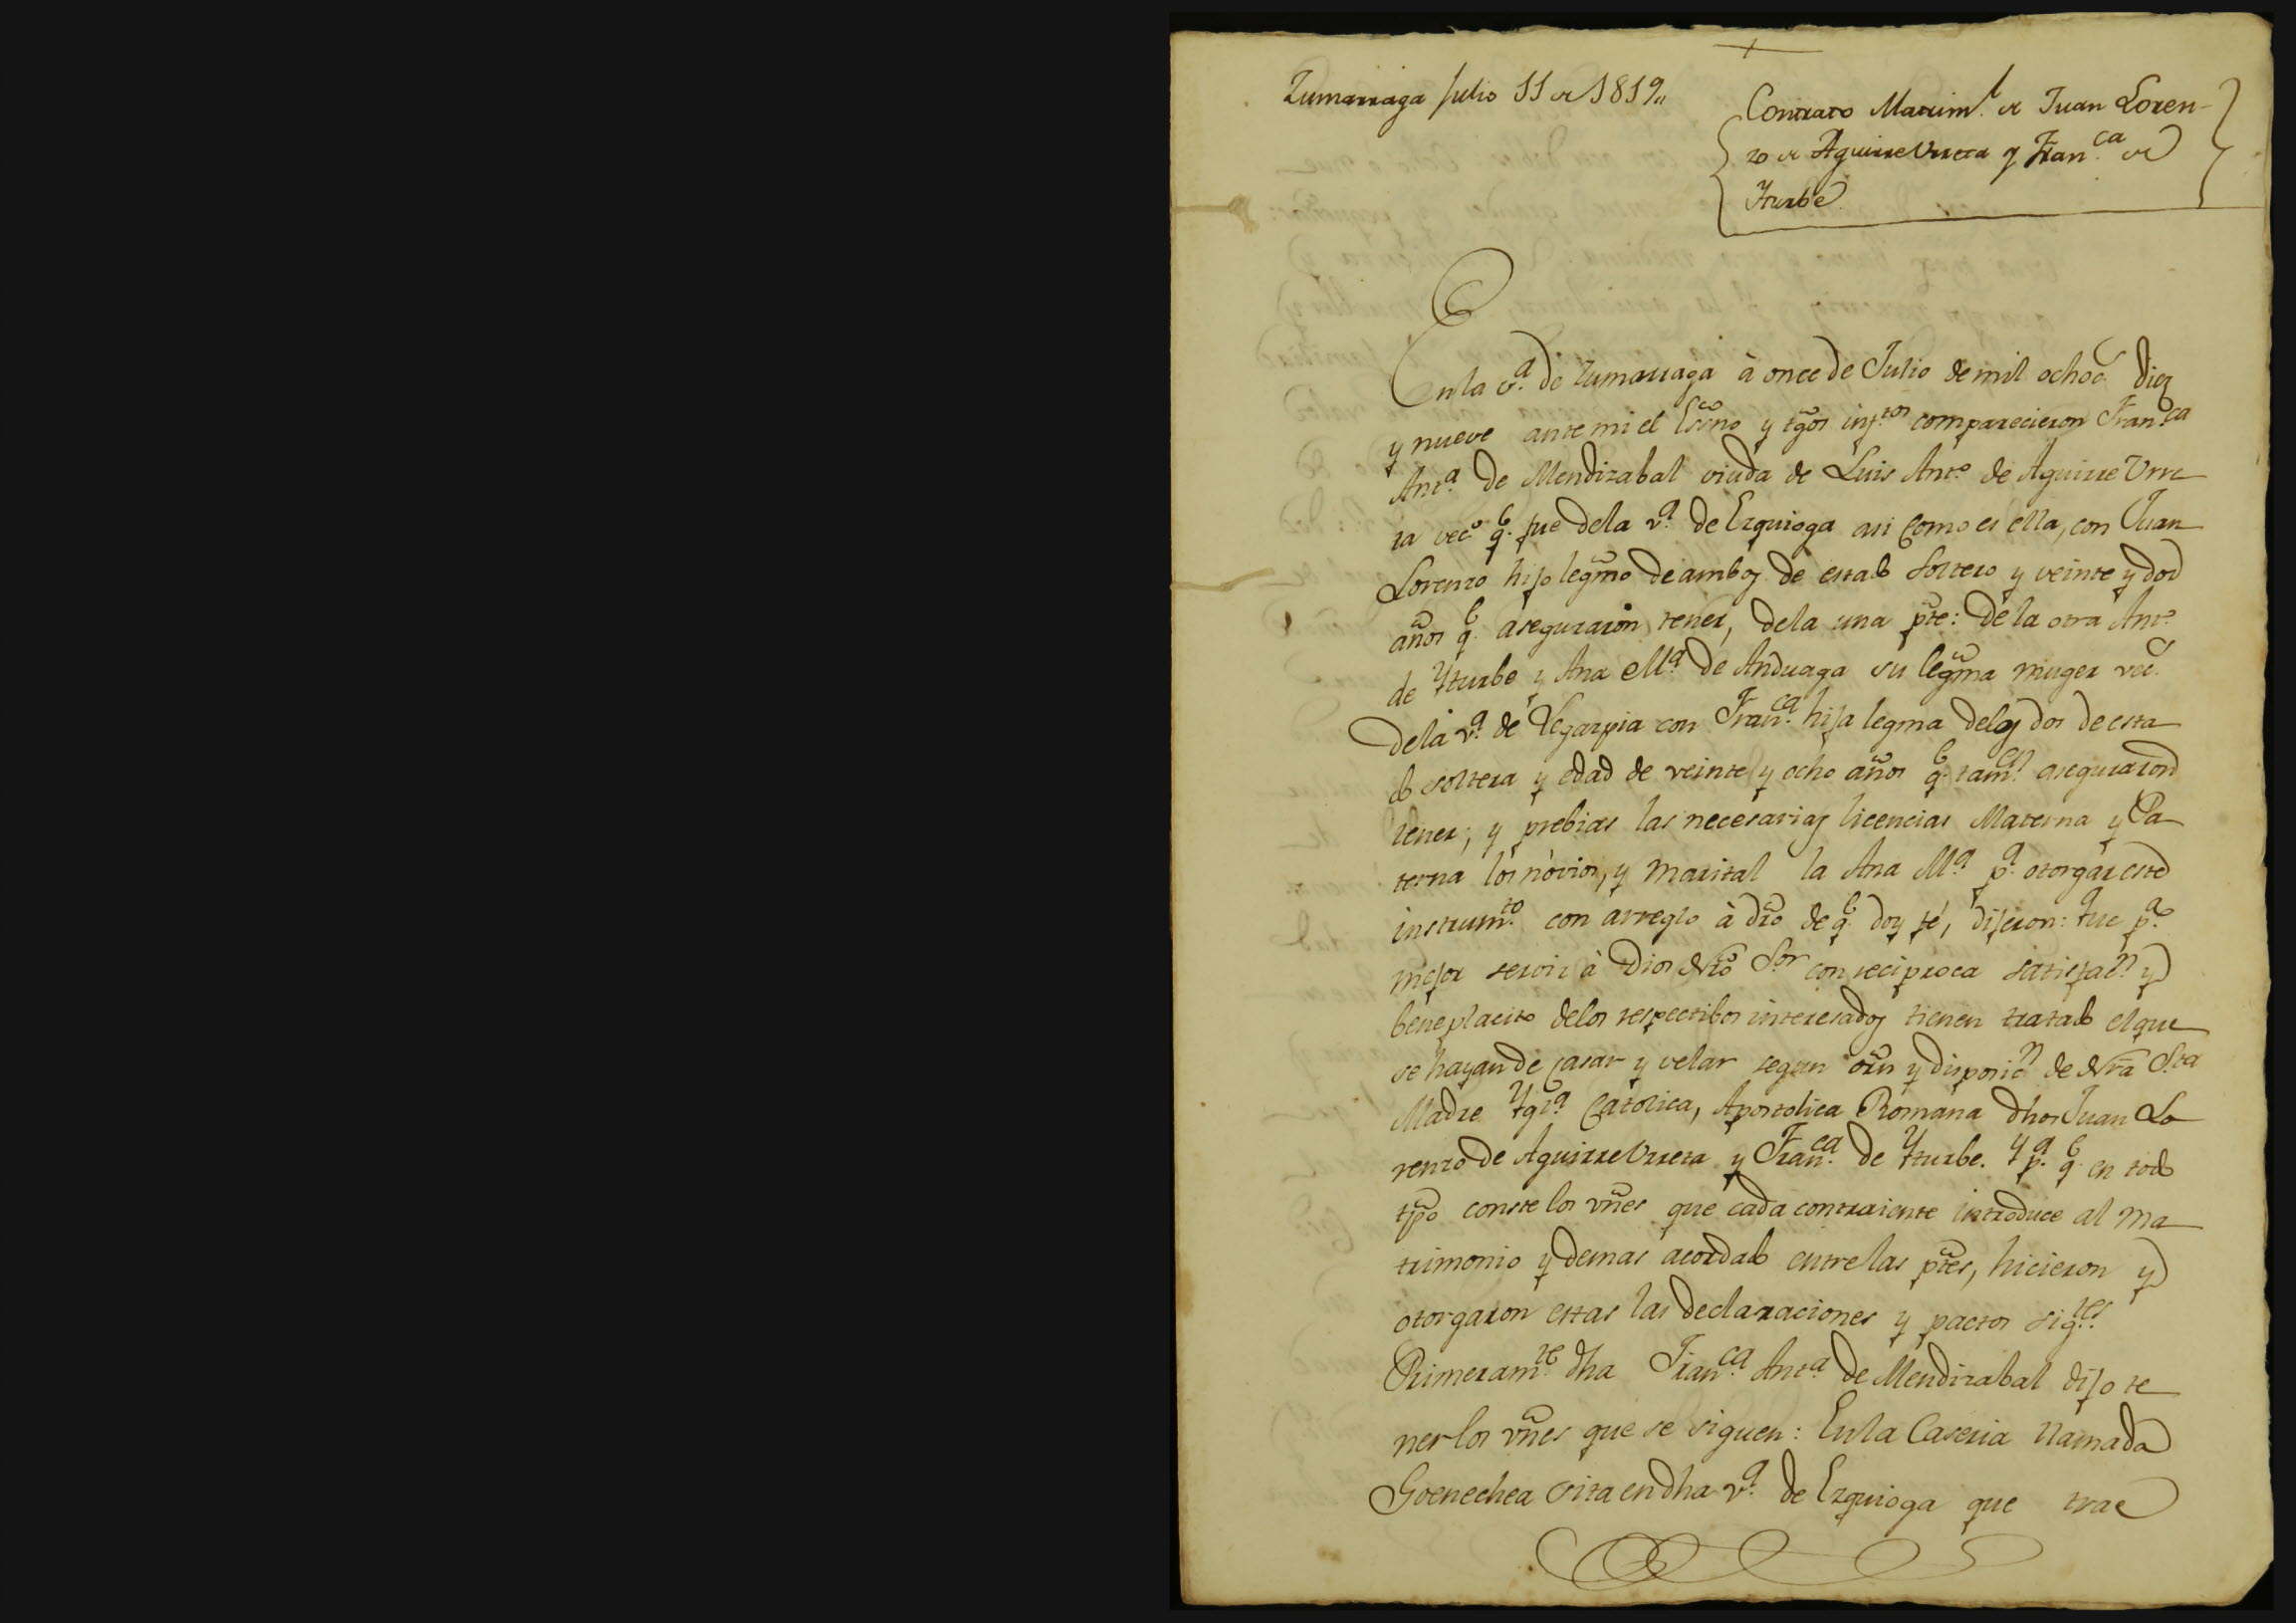 Zumarraga Julio 11 de 1819,,
Contrato Matrim.l de Juan Loren-
zo de AguirreUrreta y Fran.ca de
Yturbe.
En la v.a de Zumarraga à once de Julio de mil ochoc. diez
y nueve ante mi el Essno y tgos inf.tos comparecieron Fran.ca
Ant.a de Mendizabal viuda de Luis Ant.o de Aguirre Urre
ta vec.o q.e fue de la v.a de Ezquioga asi como es ella, con Juan
Lorenzo hijo legmo de ambos de estado soltero y veinte y dos
años q.e aseguraron tener, de la una pte: De la otra Ant.o
de Yturbe y Ana M.a de Anduaga su legma muger vec.
de la v.a de Legazpia con Fran.ca hija legma de los dos de esta
do soltera y edad de veinte y ocho años q.e tam.en aseguraron
tener; y prebias las necesarias licencias Materna y Pa
terna los nòvios, y marital la Ana M.a p.a otorgar este
instrum.to con arreglo à dro de q.e doy fé, dijeron: Que p.a
mejor servir à Dios Nro S.or con reciproca satisfac.n y
beneplacito de los respectibos interesados tienen tratado el que
se hayan de casar y velar segun orn y disposic.n de Nra S.ta
Madre Ygla.a Catolica, Apostolica Romana dhos Juan Lo
renzo de AguirreUrreta y Fran.ca de Yturbe. Y p.a q.e en todo
tpo conste los vnes que cada contraiente introduce al ma
trimonio y demas acordado entre las ptes, hicieron y
otorgaron estas las declaraciones y pactos sig.tes
Primeram.te dha Fran.ca Ant.a de Mendizabal dijo te
ner los vnes que se siguen: En la Caseria llamada
Goenechea sita en dha v.a de Ezquioga que trae